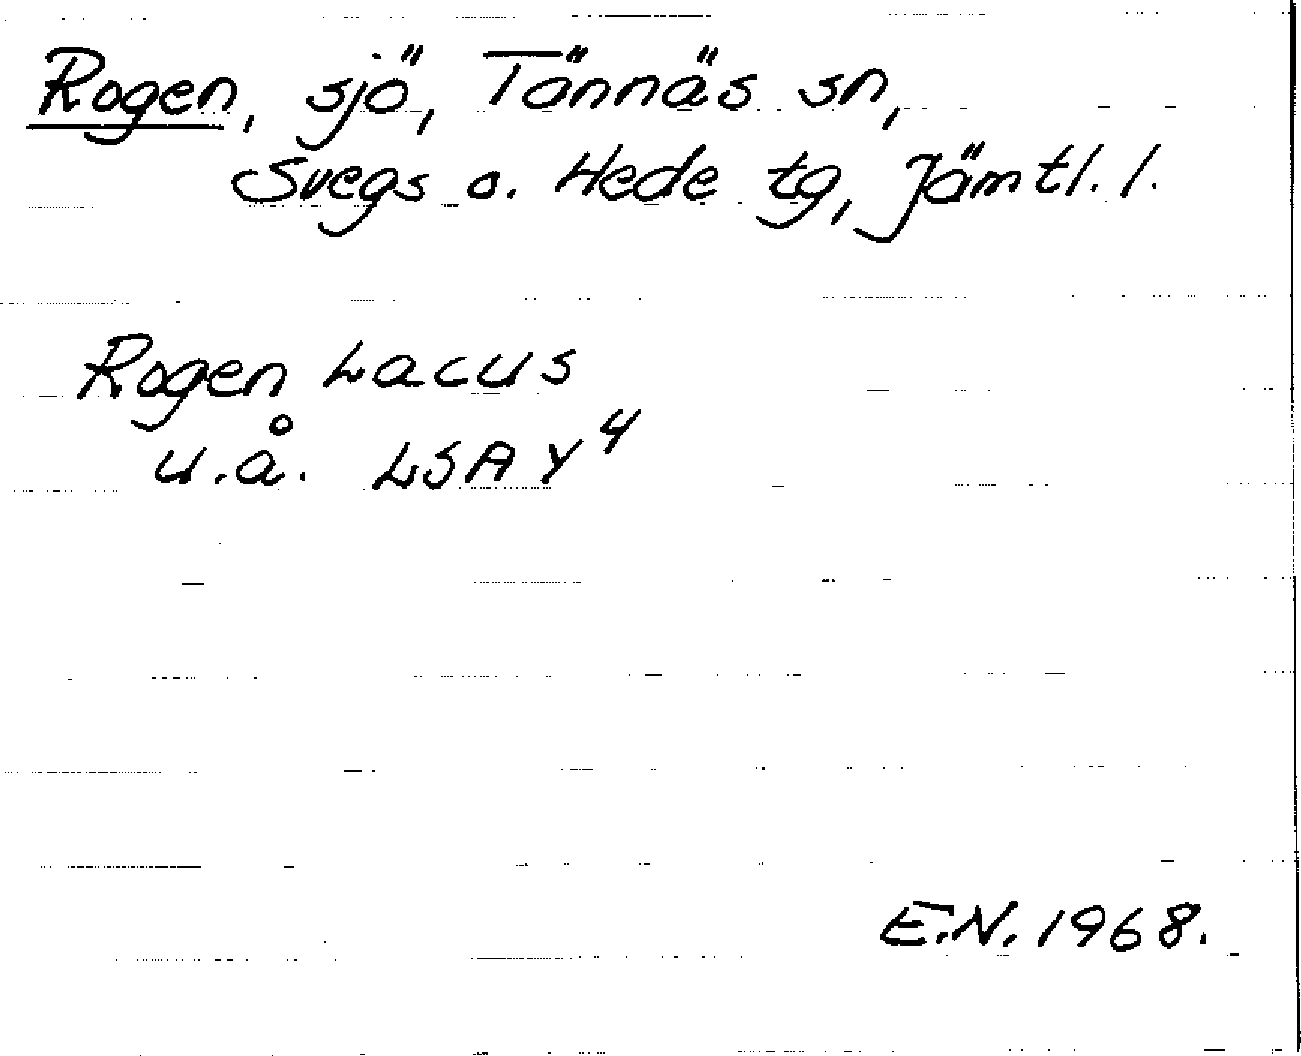 Rogen, sjö, Tännäs sn,
Svegs o. Hede tg, Jämtl. l.
Rogen Lacus
u.å. LSA Y⁴
E.N. 1968.